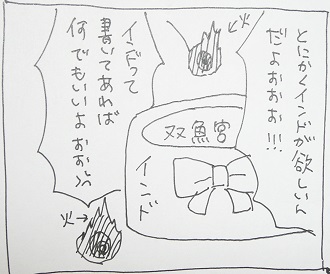 とにかくインドが欲しいん
だよぉぉぉ!!!
火
双魚宮
インド
インドって
書いてあれば
何でもいいよぉぉ
火→